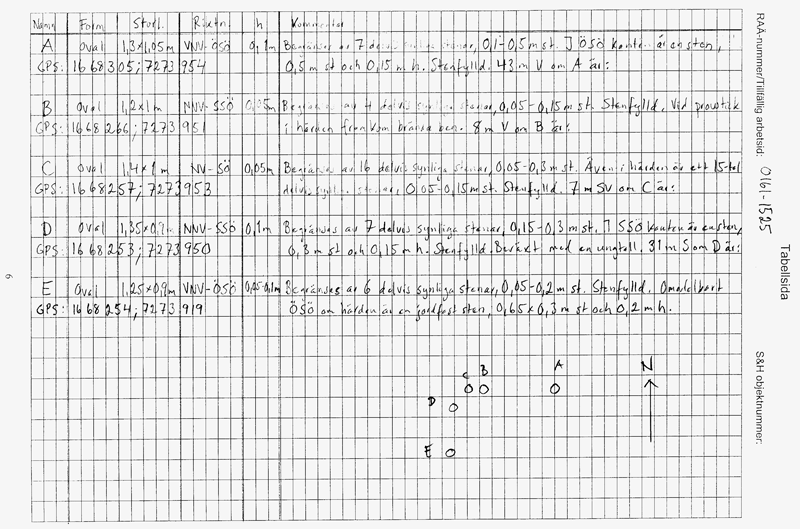 Namn Form Storl. Riktn. h Kommentar
A Oval 1,3×1,05m VNV-ÖSÖ 0,1m Begränsas av 7 delvis synliga stenar, 0,1-0,5m st. I ÖSÖ kanten är en sten,
GPS: 1668305; 7273954 0,5 m st och 0,15 m h. Stenfylld. 43 m V om A är:
B Oval 1,2×1m NNV-SSÖ 0,05m Begränsas av 4 delvis synliga stenar, 0,05-0,15m st. Stenfylld. Vid provstick
GPS: 1668266; 7273951 i härden framkom brända ben. 8 m V om B är:
C Oval 1,4×1m NV-SÖ 0,05m Begränsas av 16 delvis synliga stenar, 0,05-0,3m st. Även i härden är ett 15-tal
GPS: 1668257; 7273953 delvis synliga stenar, 0,05-0,15m st. Stenfylld. 7 m SV om C är:
D Oval 1,35×0,9m NNV-SSÖ 0,1m Begränsas av 7 delvis synliga stenar, 0,15-0,3m st. I SSÖ kanten är en sten,
GPS: 1668253; 7273950 0,3 m st och 0,15 m h. Stenfylld. Beväxt med en ungtall. 31 m S om D är:
E Oval 1,25×0,9m VNV-ÖSÖ 0,05-0,1m Begränsas av 6 delvis synliga stenar, 0,05-0,2m st. Stenfylld. Omedelbart
GPS: 1668254; 7273919 ÖSÖ om härden är en jordfast sten, 0,65×0,3 m st och 0,2 m h.
C B A N
D
E
RAÄ-nummer/Tillfällig arbetsid: 0161-1525
Tabellsida
S&H objektnummer:
6